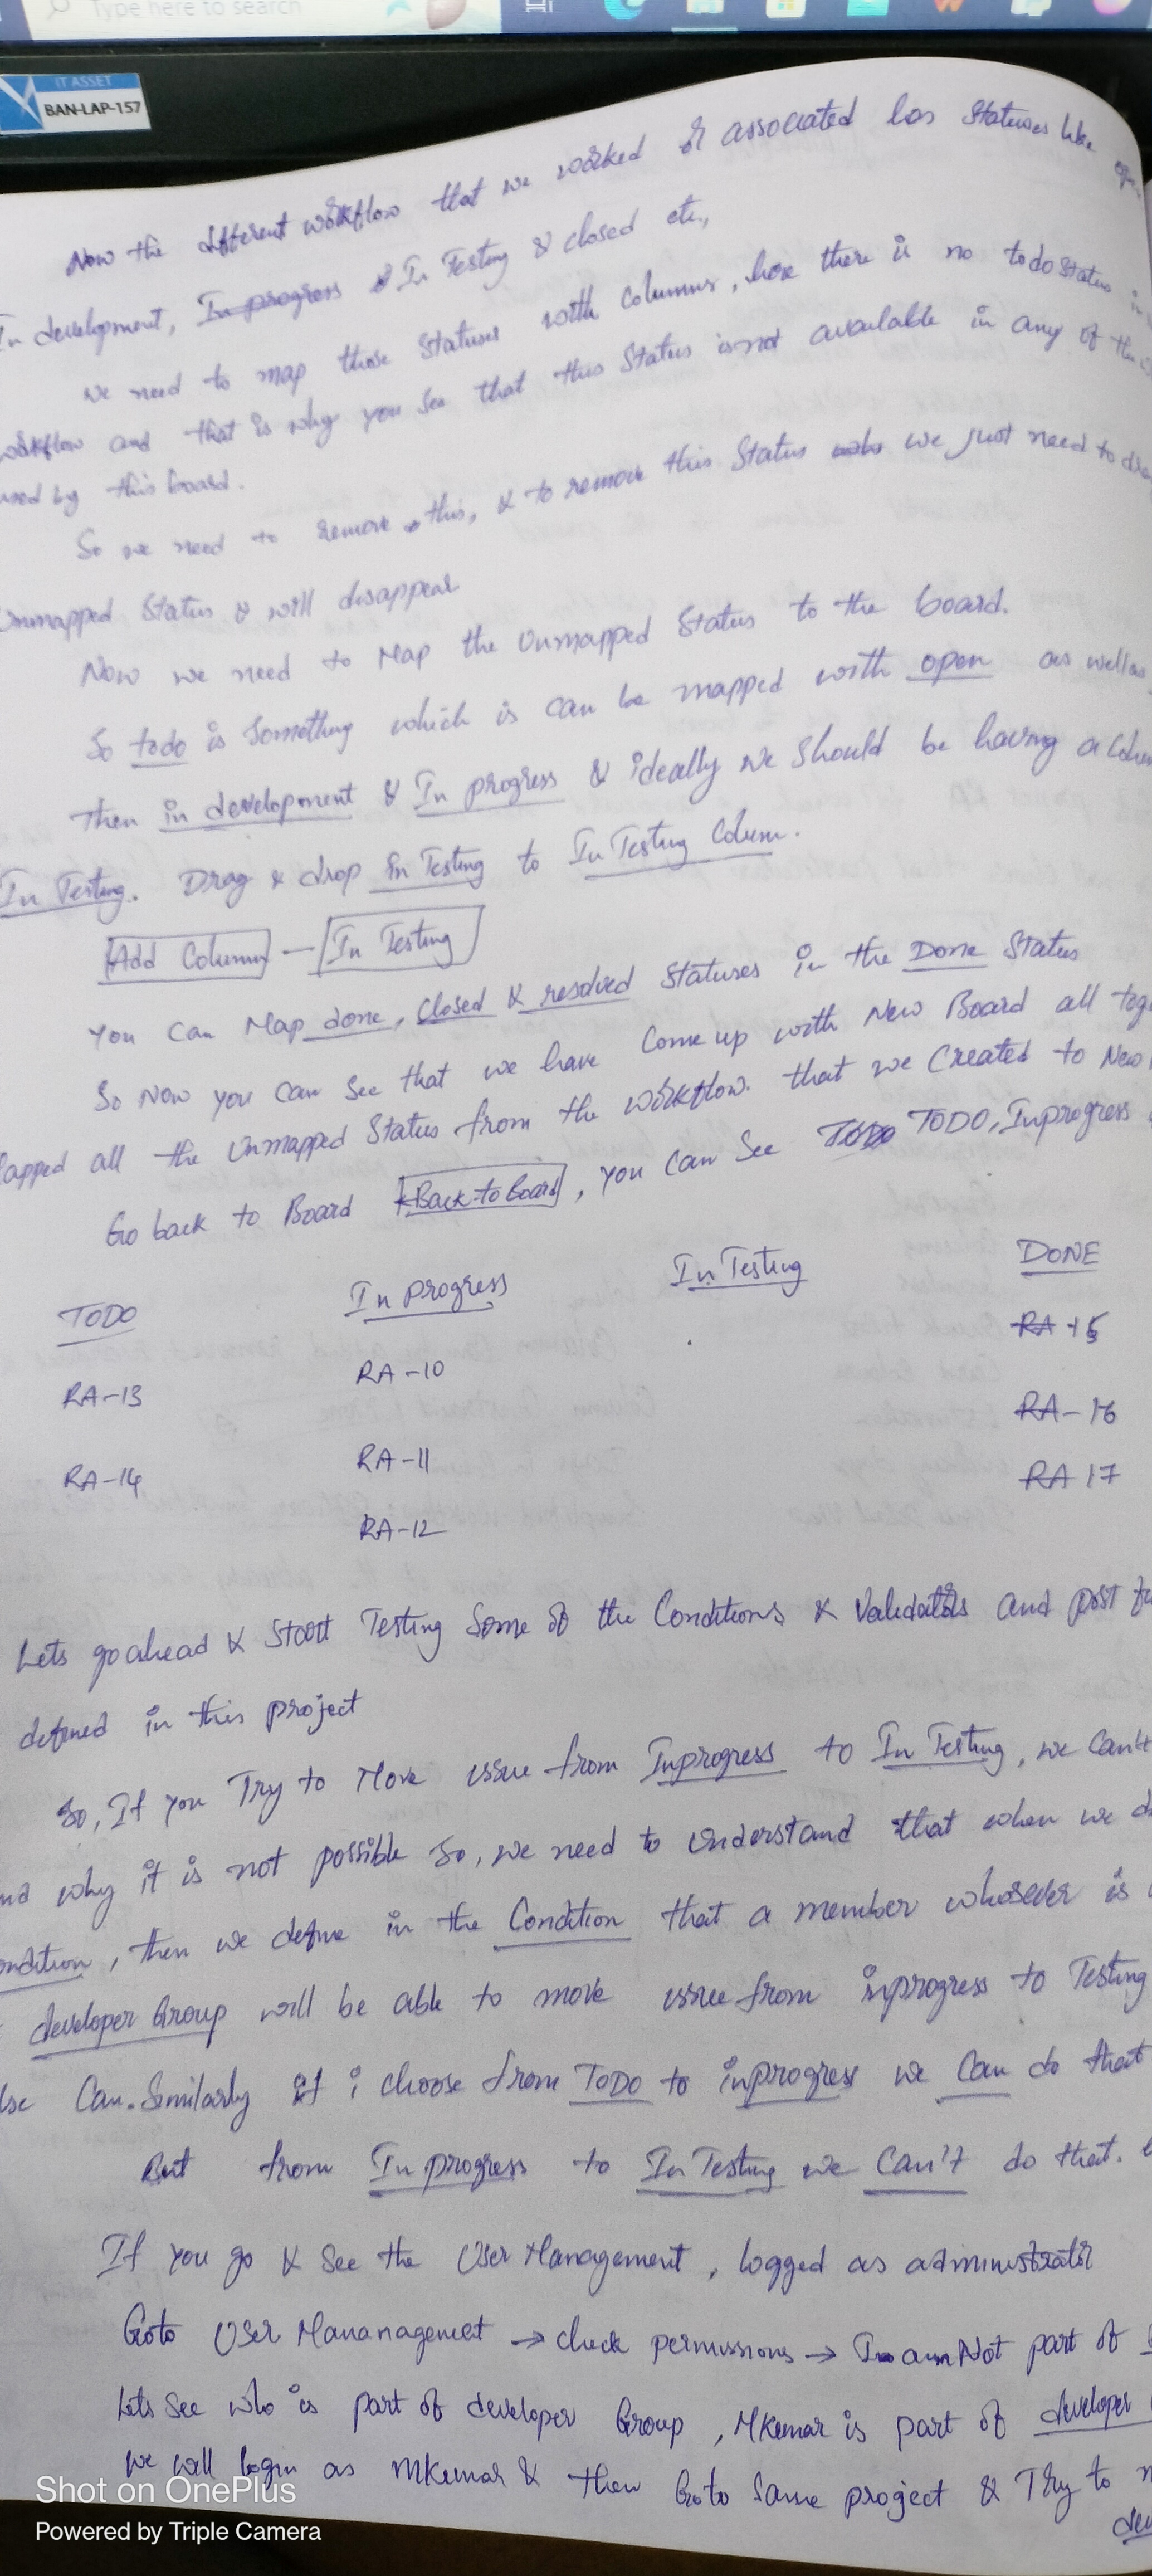 Type here to search
IT ASSET
BAN-LAP-157
Now the different workflow that we worked or associated has statuses like
In development, In progress & In Testing & closed etc.,
we need to map those statuses with columns, here there is no todo status in
workflow and that is why you see that this status is not available in any of the
used by this board.
So we need to remove this, & to remove this status we just need to
Unmapped status & will disappear
Now we need to Map the Unmapped status to the board.
So todo is something which is can be mapped with open as well as
Then in development & In progress & ideally we should be having a
In Testing. Drag & drop In Testing to In Testing Column.
Add Column — In Testing
You can Map done, closed & resolved statuses in the Done status
So Now you can see that we have come up with New Board all
all the Unmapped status from the workflow. that we created to New
Go back to Board Back to board, you can see TODO TODO, Inprogress
TODO In progress In Testing DONE
RA-13 RA-10 RA-15
RA-14 RA-11 RA-16
RA-12 RA 17
Lets go ahead & Start Testing Some of the Conditions & Validators and post
defined in this project
So, If you Try to Move issue from Inprogress to In Testing, we can't
why it is not possible So, we need to understand that when we
, then we define in the Condition that a member whosoever is
developer Group will be able to move issue from inprogress to Testing
Can. Similarly if i choose from TODO to inprogress we Can do that
But from In progress to In Testing we Can't do that.
If you go & see the User Management, logged as administrator
Goto User Mananagement → check permissions → I am Not part of
Lets See who is part of developer Group, MKumar is part of developer
we will login as mkumar & then Goto Same project & Try to
Shot on OnePlus
Powered by Triple Camera